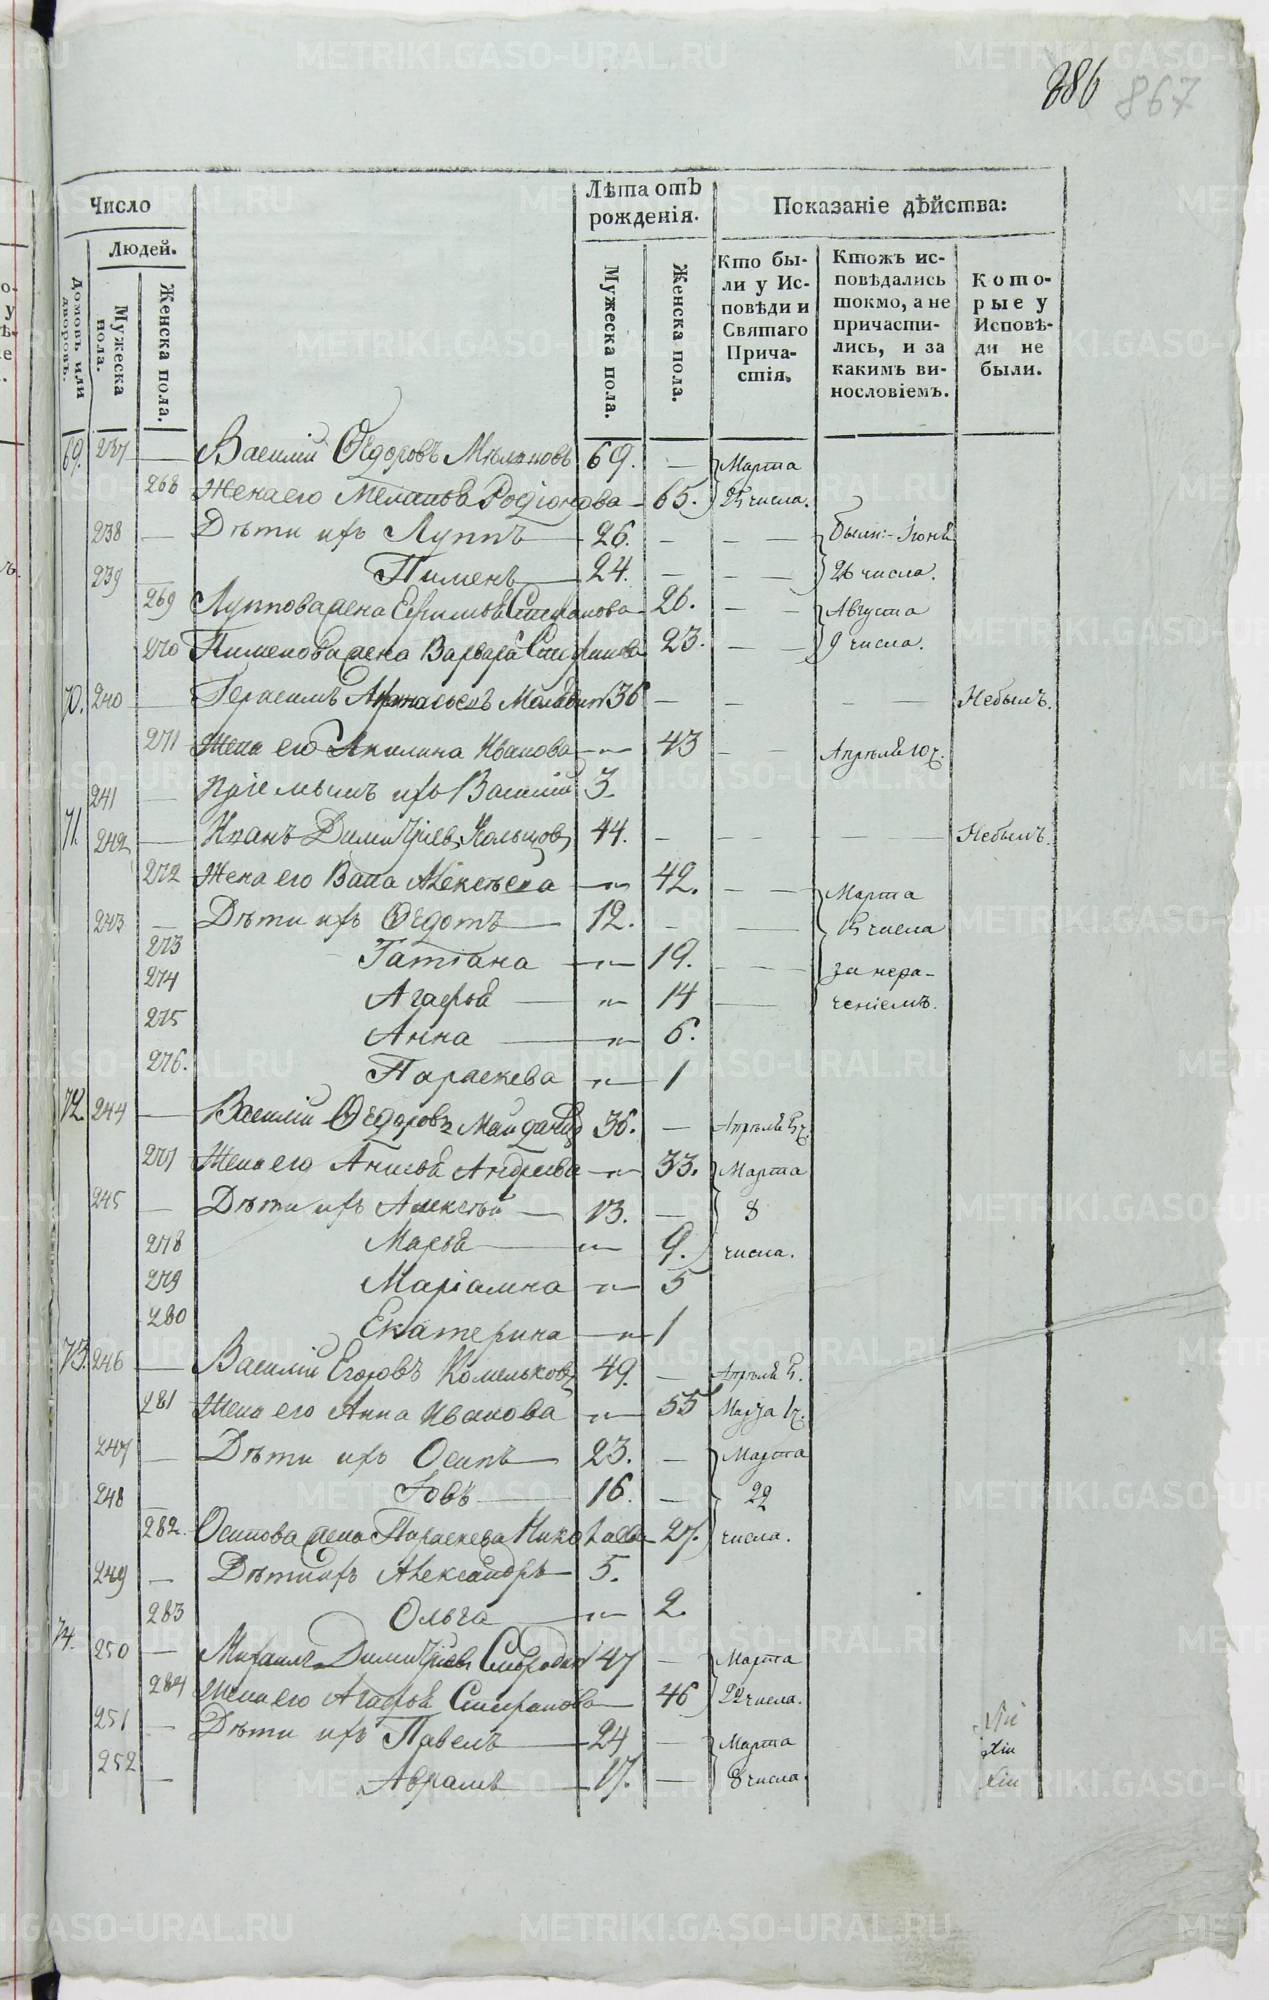 886 867
Число
Лѣта отъ рожденія.
Показаніе дѣйства:
Людей.
Домовъ или дворовъ.
Мужеска пола.
Женска пола.
Мужеска пола.
Женска пола.
Кто были у Исповѣди и Святаго Причастія.
Ктожъ исповѣдались токмо, а не причастились, и за какимъ винословіемъ.
Которые у Исповѣди не были.
69. 237 — Василій Ѳедоровъ 69. — Марта
268 Жена его Меланья Родіонова — 65. 25 числа.
238 — Дѣти ихъ Луппъ — 26. — — — были: Іюня
239 — Пименъ — 24. — — — 26 числа.
269 Луппова жена Стефанова — 26. — — Августа
270 Пименова жена Варвара — 23. — — 9 числа.
70. 240 — Герасимъ 36 — — — — Небылъ.
271 Жена его Акилина Иванова — 43 — — Апрѣля 10 ч.
241 — Пріемышъ ихъ Василій 3.
71. 242 — Иванъ Димитріевъ Кольцовъ 44. — — — — Небылъ.
272 Жена его Алексѣева — 42. — — Марта
243 — Дѣти ихъ Ѳедотъ — 12. — — 15 числа
273 Татіана — 19. — — за нера-
274 Агафья — 14 — ченіемъ.
275 Анна — 6.
276. Параскева — 1
72. 244 — Василій Ѳедоровъ 36. — Апрѣля 5 ч.
277 Жена его Анисья Андреева — 33. Марта
245 — Дѣти ихъ Алексѣй — 13. — 8
278 Марья — 9. числа.
279 Маріамна — 5
280 Екатерина — 1
73. 246 — Василій Егоровъ Комельковъ 49. — Апрѣля 5.
281 Жена его Анна Иванова — 55
247 — Дѣти ихъ Осипъ — 23. — Марта
248 — Іовъ — 16. — 22
282. Осипова жена Параскева Николаева — 27. числа.
249 — Дѣти ихъ Александръ — 5.
283 Ольга — 2.
74. 250 — Михаилъ Димитріевъ 47 — Марта
284 Жена его Агафья Стефанова — 46 22 числа.
251 — Дѣти ихъ Павелъ — 24 — Марта
252 — Авраамъ — 17. — 8 числа.
METRIKI.GASO-URAL.RU